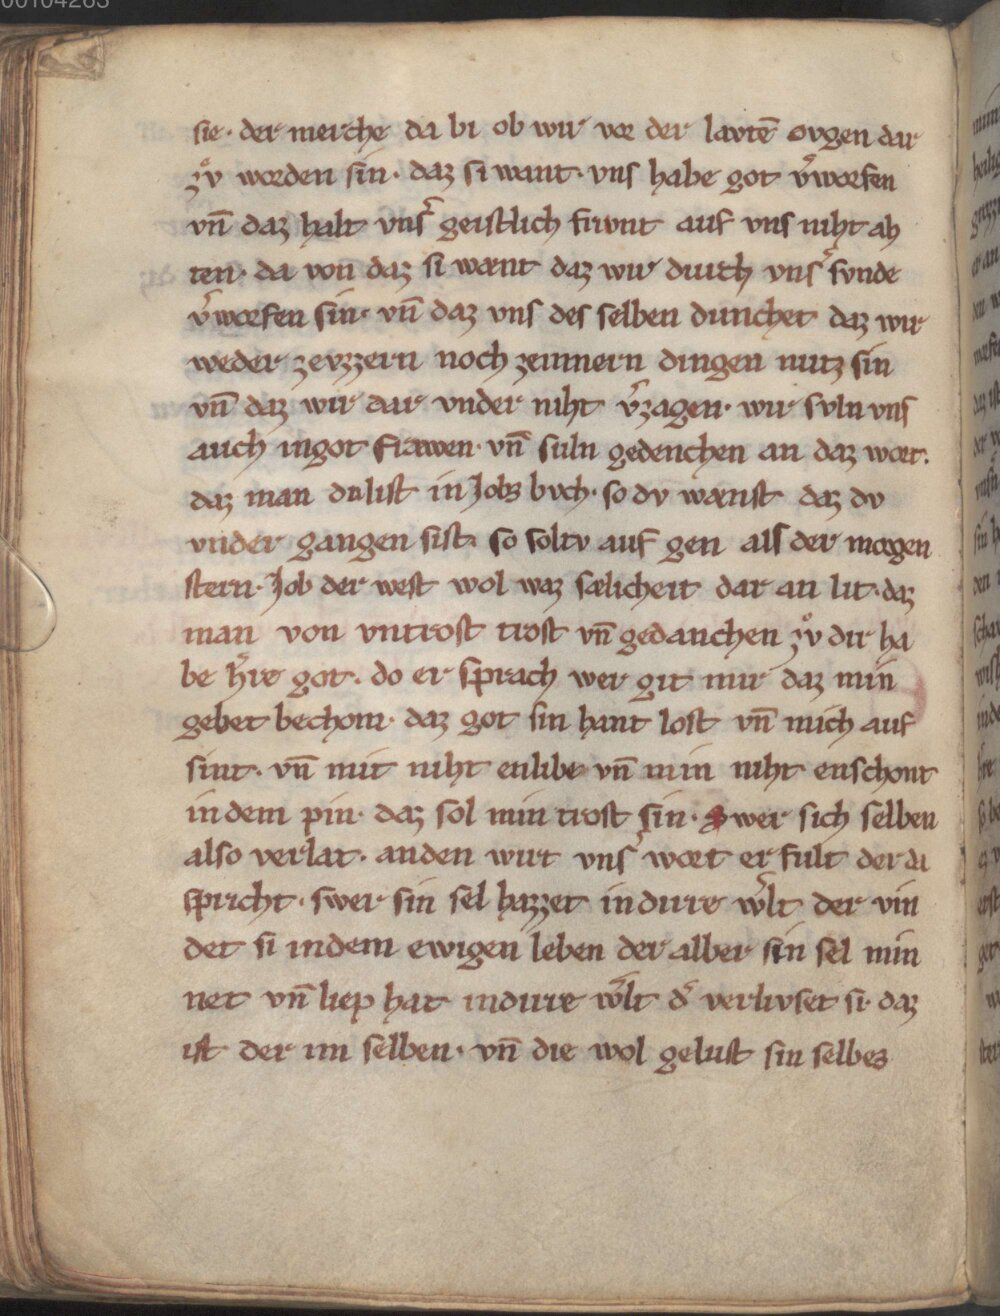 00104263
sie· der merche da bi ob wir vor der lavtē ovgen dar
zů worden sin· daz si want· vns habe got v͛worfen
vn̄ daz halt vns͛ geistlich frivnt auf vns niht ah
ten· da von daz si wænt daz wir durch vns͛ svnde
v͛worfen sin· vn̄ daz vns des selben dunchet daz wir
weder zevzzern noch zeinnern dingen nutz sin
vn̄ daz wir dar vnder niht v͛zagen· wir svln vns
auch ingot frawen· vn̄ suln gedenchen an daz wort.
daz man da list in Jobs bvch· so dv wænst daz dv
vnder gangen sist· so soltv auf gen als der morgen
stern· Job der west wol waz sælicheit dar an lit· daz
man von vntrost trost vn̄ gedanchen zů dir ha
be h͛re got· do er sprach wer git mir daz min
gebet bechom· daz got sin hant lost vn̄ mich auf
sint· vn̄ mit niht enlibe vn̄ min niht enschont
in dem pin· daz sol min trost sin· Swer sich selben
also verlat· anden wirt vns͛ wort er fult der da
spricht· swer sin sel hazzet indirre w͛lt der vin
det si indem ewigen leben der alber sin sel min
net vn̄ liep hat indirre w͛lt d͛ verlivset si· daz
ist der im selben· vn̄ die wol gelust sin selbes